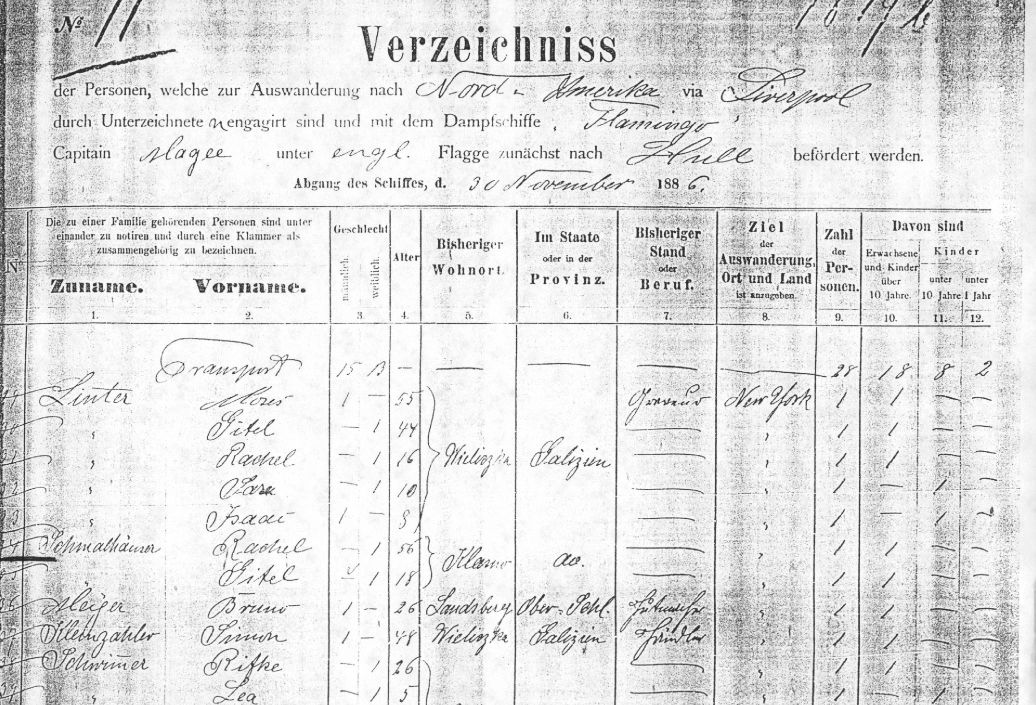 No 11
Verzeichniss
der Personen, welche zur Auswanderung nach Nord-Amerika via Liverpool
durch Unterzeichnete n engagirt sind und mit dem Dampfschiffe „ Flamingo "
Capitain Magee unter engl. Flagge zunächst nach Hull befördert werden.
Abgang des Schiffes, d. 30 November 1886.
Die zu einer Familie gehörenden Personen sind unter einander zu notiren und durch eine Klammer als zusammengehörig zu bezeichnen.
Zuname. Vorname. Geschlecht männlich. weiblich. Alter Bisheriger Wohnort. Im Staate oder in der Provinz. Bisheriger Stand oder Beruf. Ziel der Auswanderung, Ort und Land ist anzugeben. Zahl der Personen. Davon sind Erwachsene und Kinder über 10 Jahre. Kinder unter 10 Jahre. unter 1 Jahr
1. 2. 3. 4. 5. 6. 7. 8. 9. 10. 11. 12.
Transport 15 13 — — — — — 28 18 8 2
Linter Moses 1 — 55 New York 1 1 — —
" Gitel — 1 44 — " 1 1 — —
" Rachel — 1 16 Wieliczka Galizien — " 1 1 — —
" Sara — 1 10 — " 1 — 1 —
" Isaac 1 — 8 — " 1 — 1 —
Schmalhäuser Rachel — 1 56 — " 1 1 — —
Gitel 1 18 do. — " 1 1 — —
Bruno 1 — 26 Landsberg Ober-Schl. " 1 1 — —
Kleinzahler Simon 1 — 48 Wieliczka Galizien Händler " 1 1 — —
Schwimer Rifke — 1 26 — " 1 1 — —
" Lea — 1 5 — " 1 — 1 —